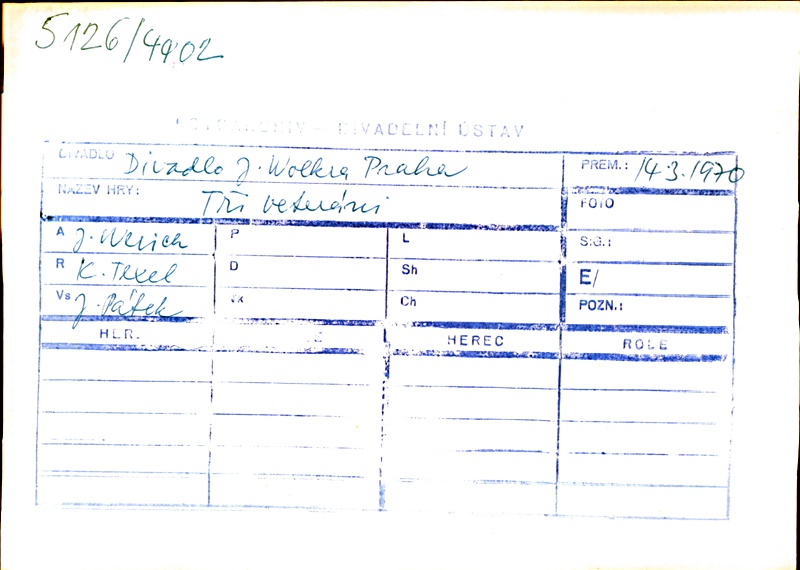 5126/4902
FOTOARCHIV - DIVADELNÍ ÚSTAV
DIVADLO Divadlo J. Wolkra Praha PREM.: 14.3.1970
NÁZEV HRY: Tři veteráni FOTO
A J. Werich P L SIG.:
R K. Texel D Sh E/
Vs J. Pátek Ch POZN.:
HER. HEREC ROLE